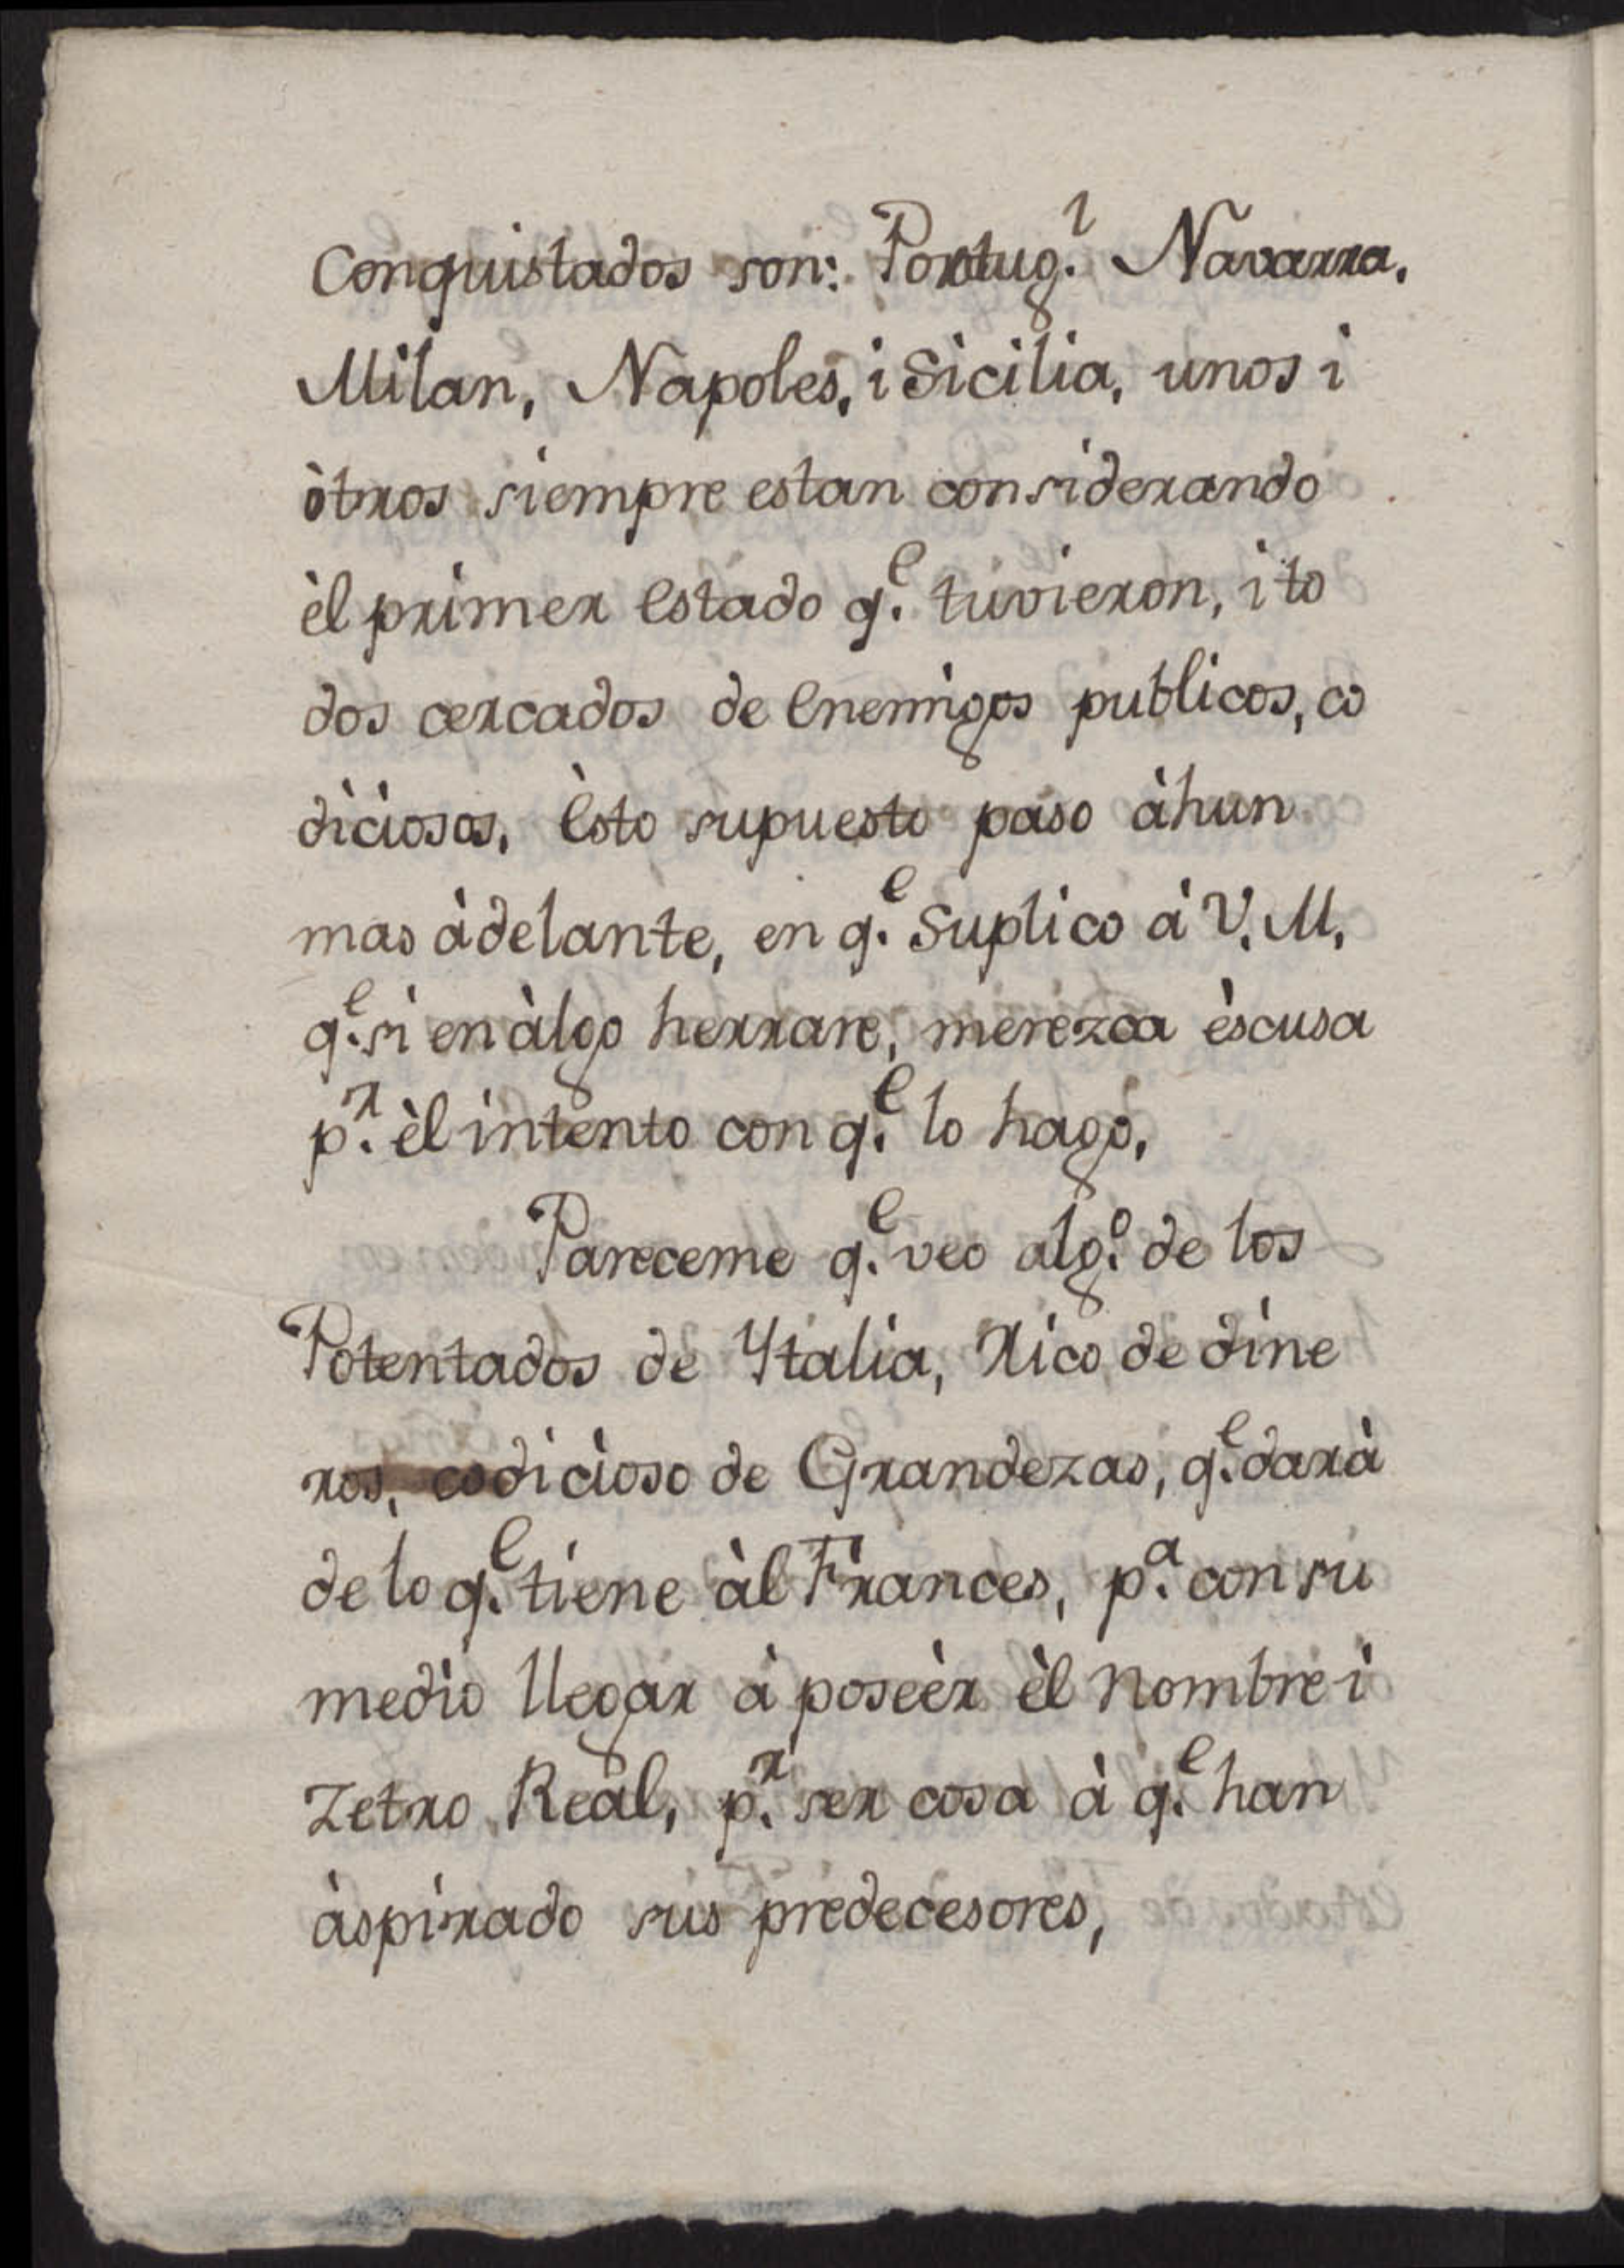 Conquistados son: Portug.l Navarra,
Milan, Napoles, i Sicilia, unos i
òtros siempre estan considerando
èl primer Estado q.e tuvieron, i to
dos cercados de Enemigos publicos, co
diciosos, Èsto supuesto paso àhun
mas àdelante, en q.e Suplico à V. M.
q.e si en àlgo herrare, merezca èscusa
p.r èl intento con q.e lo hago,
Pareceme q.e veo alg.o de los
Potentados de Ytalia, Rico de dine
ros, codicioso de Grandezas, q.e darà
de lo q.e tiene àl Frances, p.a con su
medio llegar à poseèr èl Nombre i
Zetro Reàl, p.r ser cosa à q.e han
àspirado sus predecesores,